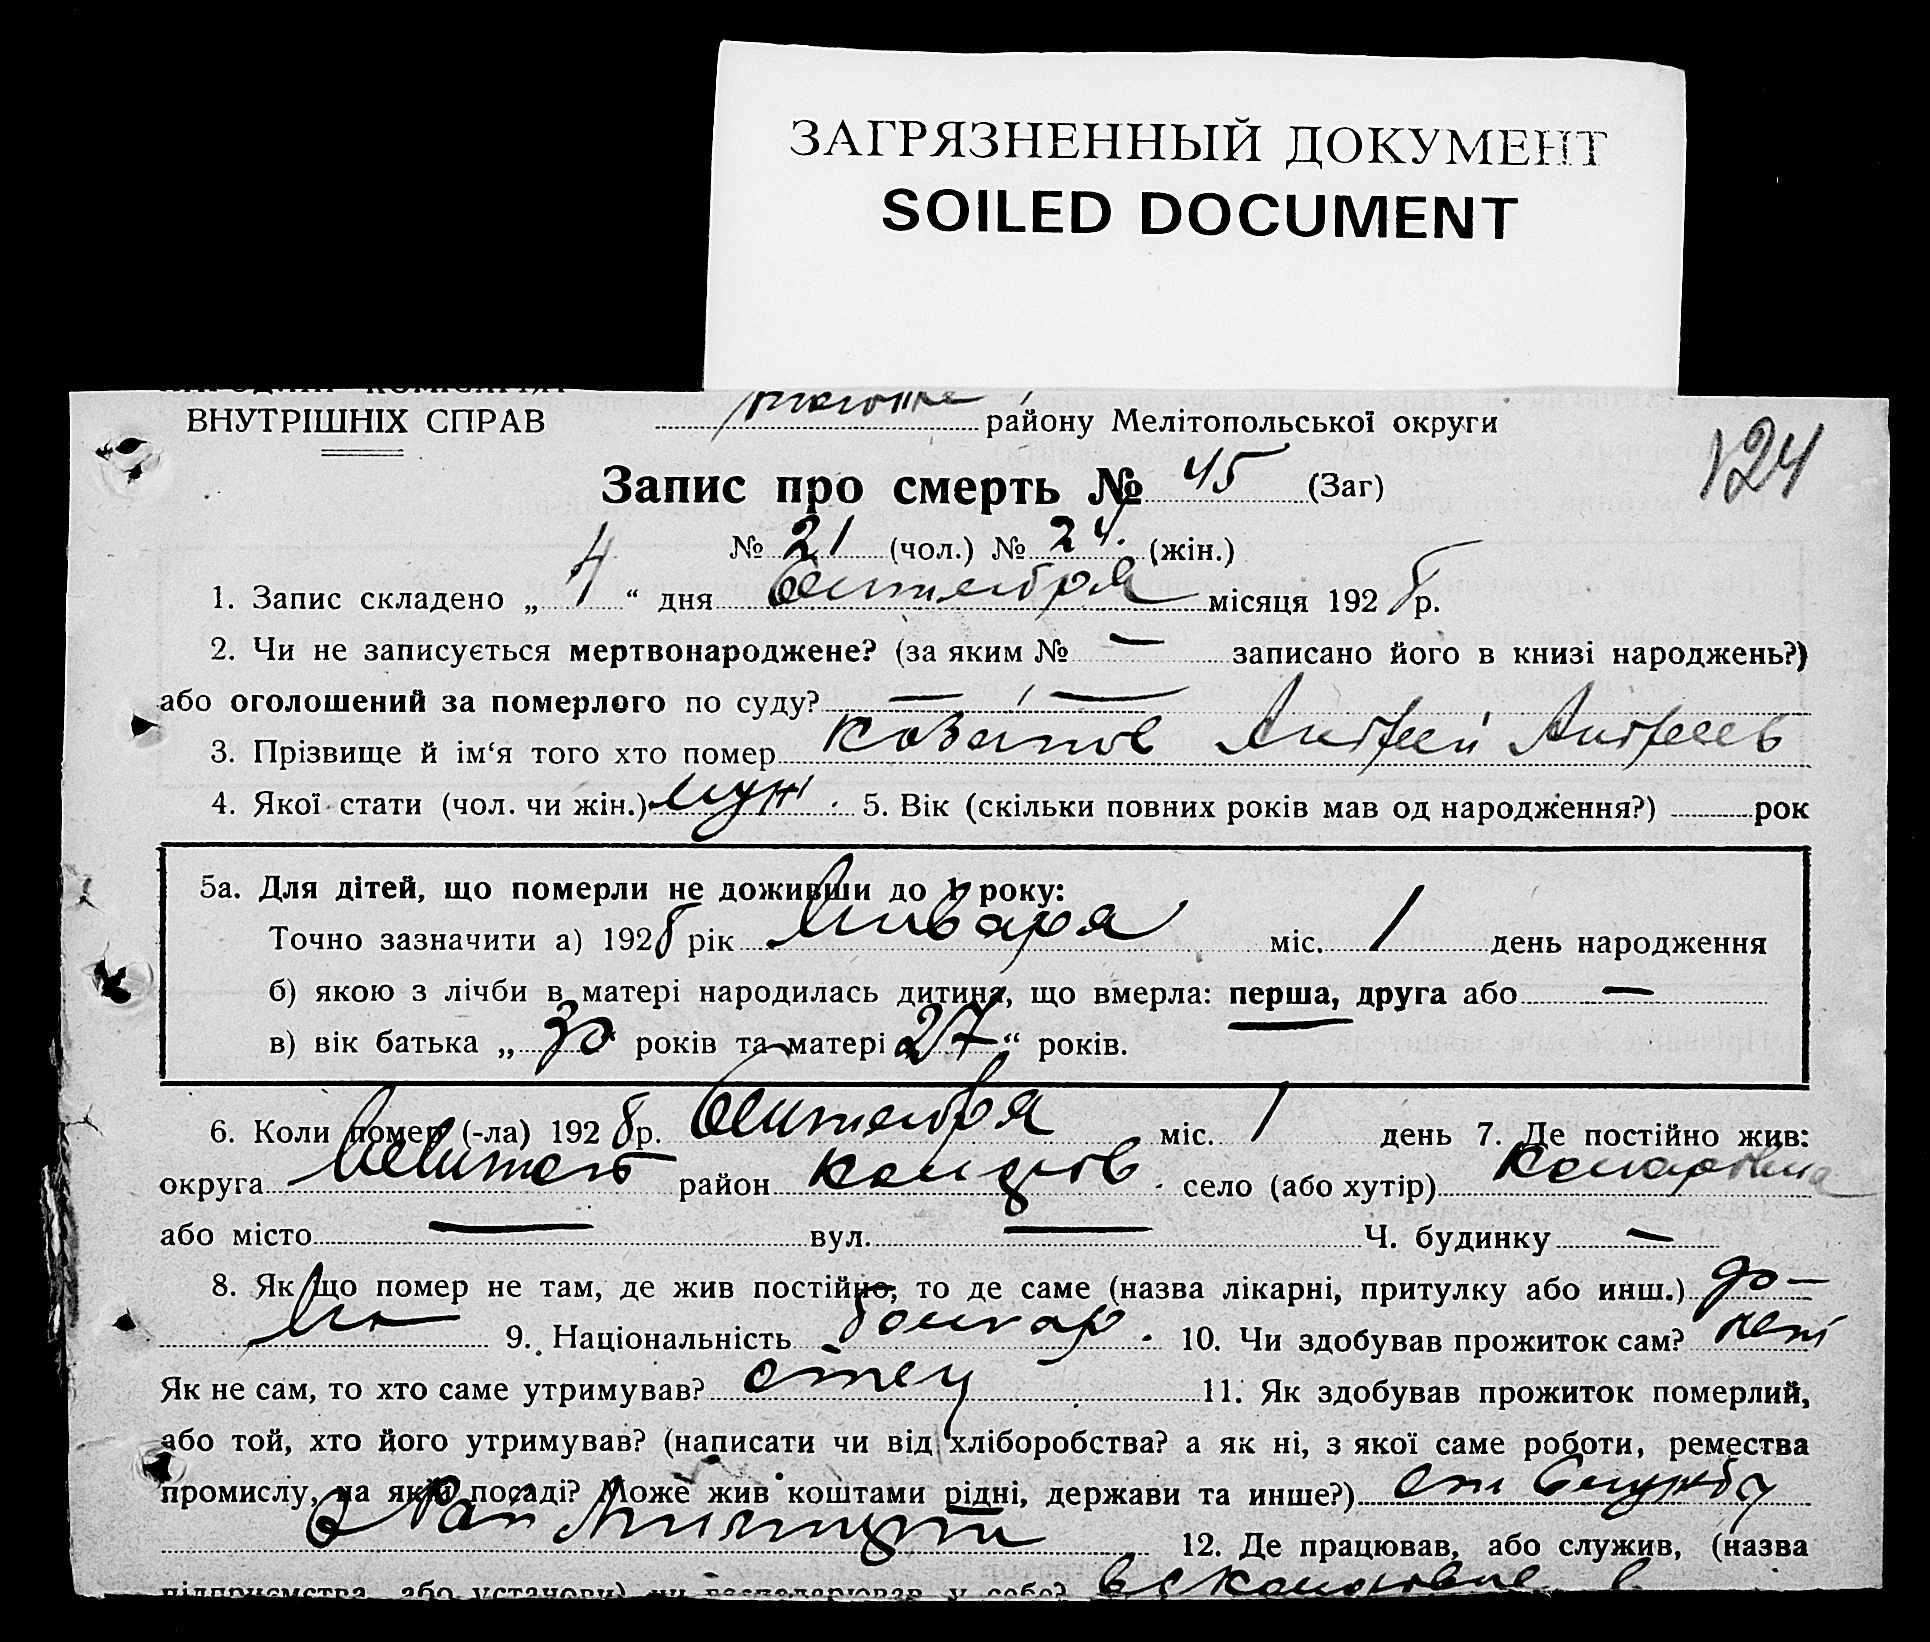 ЗАГРЯЗНЕННЫЙ ДОКУМЕНТ
SOILED DOCUMENT
ВНУТРІШНІХ СПРАВ району Мелітопольської округи
124
Запис про смерть № 45 (Заг)
№ 21 (чол.) № 24. (жін.)
1. Запис складено „ 4 “ дня Сентября місяця 1928 р.
2. Чи не записується мертвонароджене? (за яким № — записано його в книзі народжень?)
або оголошений за померлого по суду? — —
3. Прізвище й ім‘я того хто помер Андрей Андреев
4. Якої стати (чол. чи жін.) муж. 5. Вік (скільки повних років мав од народження?) рок
5а. Для дітей, що померли не доживши до 1 року:
Точно зазначити а) 1928 рік Января міс. 1 день народження
б) якою з лічби в матері народилась дитина, що вмерла: перша, друга або —
в) вік батька „ 30 “ років та матері 27 “ років.
6. Коли помер (-ла) 1928 р. Сентября міс. 1 день 7. Де постійно жив:
округа Мелитоп район село (або хутір)
або місто — вул. — Ч. будинку —
8. Як що помер не там, де жив постійно, то де саме (назва лікарні, притулку або инш.) до-
ма 9. Національність болгар. 10. Чи здобував прожиток сам? нет
Як не сам, то хто саме утримував? отец 11. Як здобував прожиток померлий,
або той, хто його утримував? (написати чи від хліборобства? а як ні, з якої саме роботи, ремества
промислу, на якій посаді? Може жив коштами рідні, держави та инше?) от Службы
в Рай 12. Де працював, або служив, (назва
підприємства, або установи) чи господарював у себе?